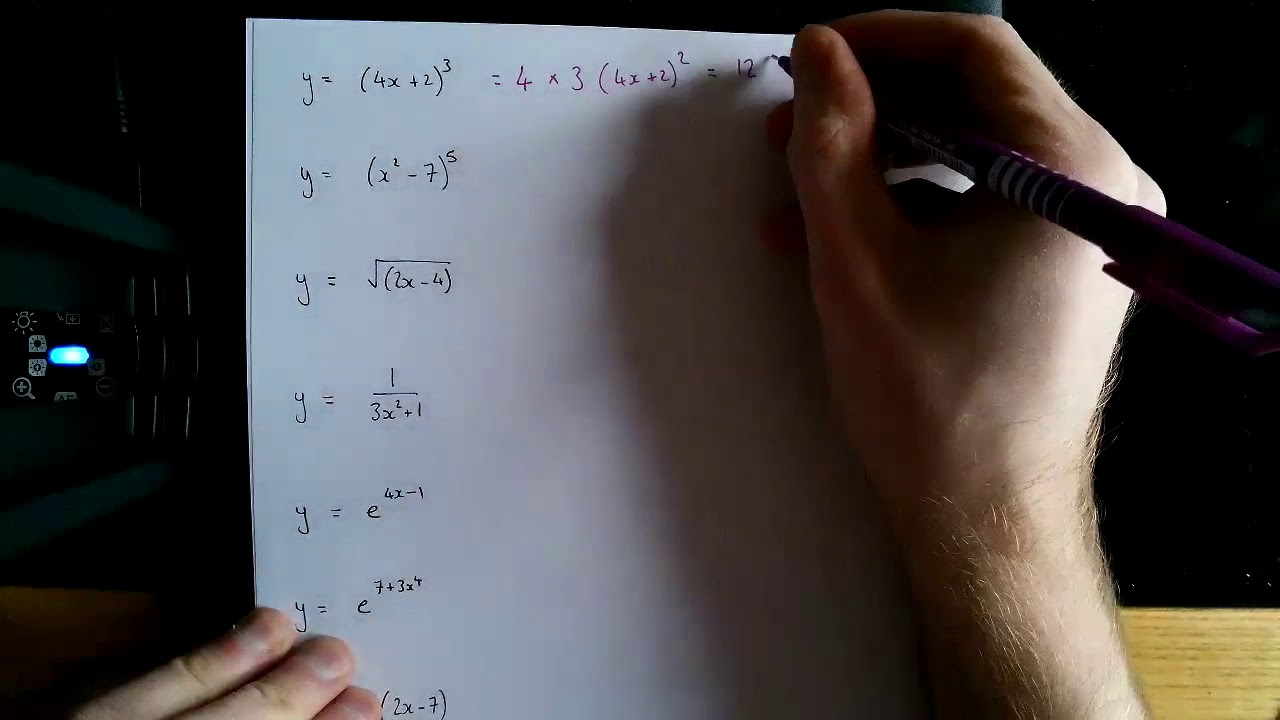 y = (4x+2)³ = 4 × 3 (4x+2)² = 12
y = (x² - 7)⁵
y = √(2x-4)
y = 1/(3x²+1)
y = e^(4x-1)
y = e^(7+3x⁴)
(2x-7)